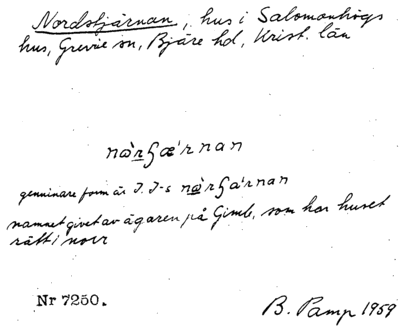 Nordstjärnan, hus i Salomonhögs
hus, Grevie sn, Bjäre hd, Krist. län
nɷ̀rʃæ'rnan
genuinare form är J. J-s nɷ̀rʃa'rnan
namnet givet av ägaren på Gimle, som har huset
rätt i norr
Nr 7250.
B. Pamp 1959